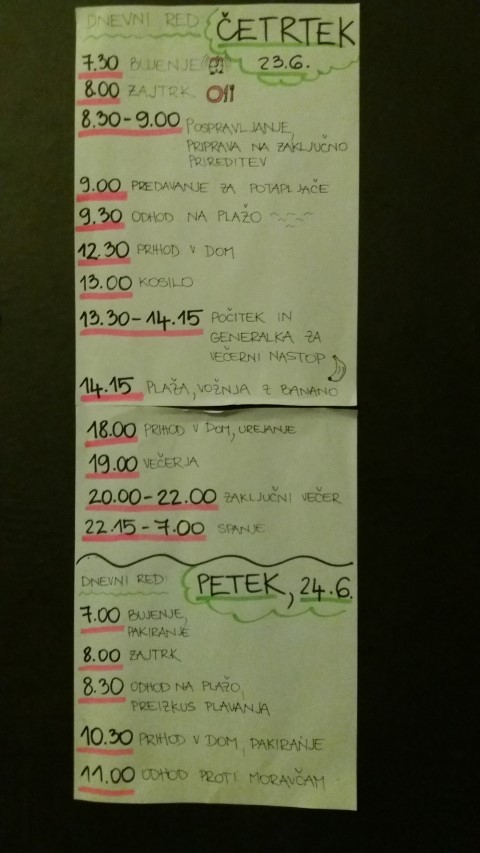 DNEVNI RED ČETRTEK
23.6.
7.30 BUJENJE
8.00 ZAJTRK
8.30-9.00 POSPRAVLJANJE,
PRIPRAVA NA ZAKLJUČNO
PRIREDITEV
9.00 PREDAVANJE ZA POTAPLJAČE
9.30 ODHOD NA PLAŽO
12.30 PRIHOD V DOM
13.00 KOSILO
13.30-14.15 POČITEK IN
GENERALKA ZA
VEČERNI NASTOP
14.15 PLAŽA, VOŽNJA Z BANANO
18.00 PRIHOD V DOM, UREJANJE
19.00 VEČERJA
20.00-22.00 ZAKLJUČNI VEČER
22.15-7.00 SPANJE
DNEVNI RED PETEK, 24.6.
7.00 BUJENJE,
PAKIRANJE
8.00 ZAJTRK
8.30 ODHOD NA PLAŽO,
PREIZKUS PLAVANJA
10.30 PRIHOD V DOM, PAKIRANJE
11.00 ODHOD PROTI MORAVČAM